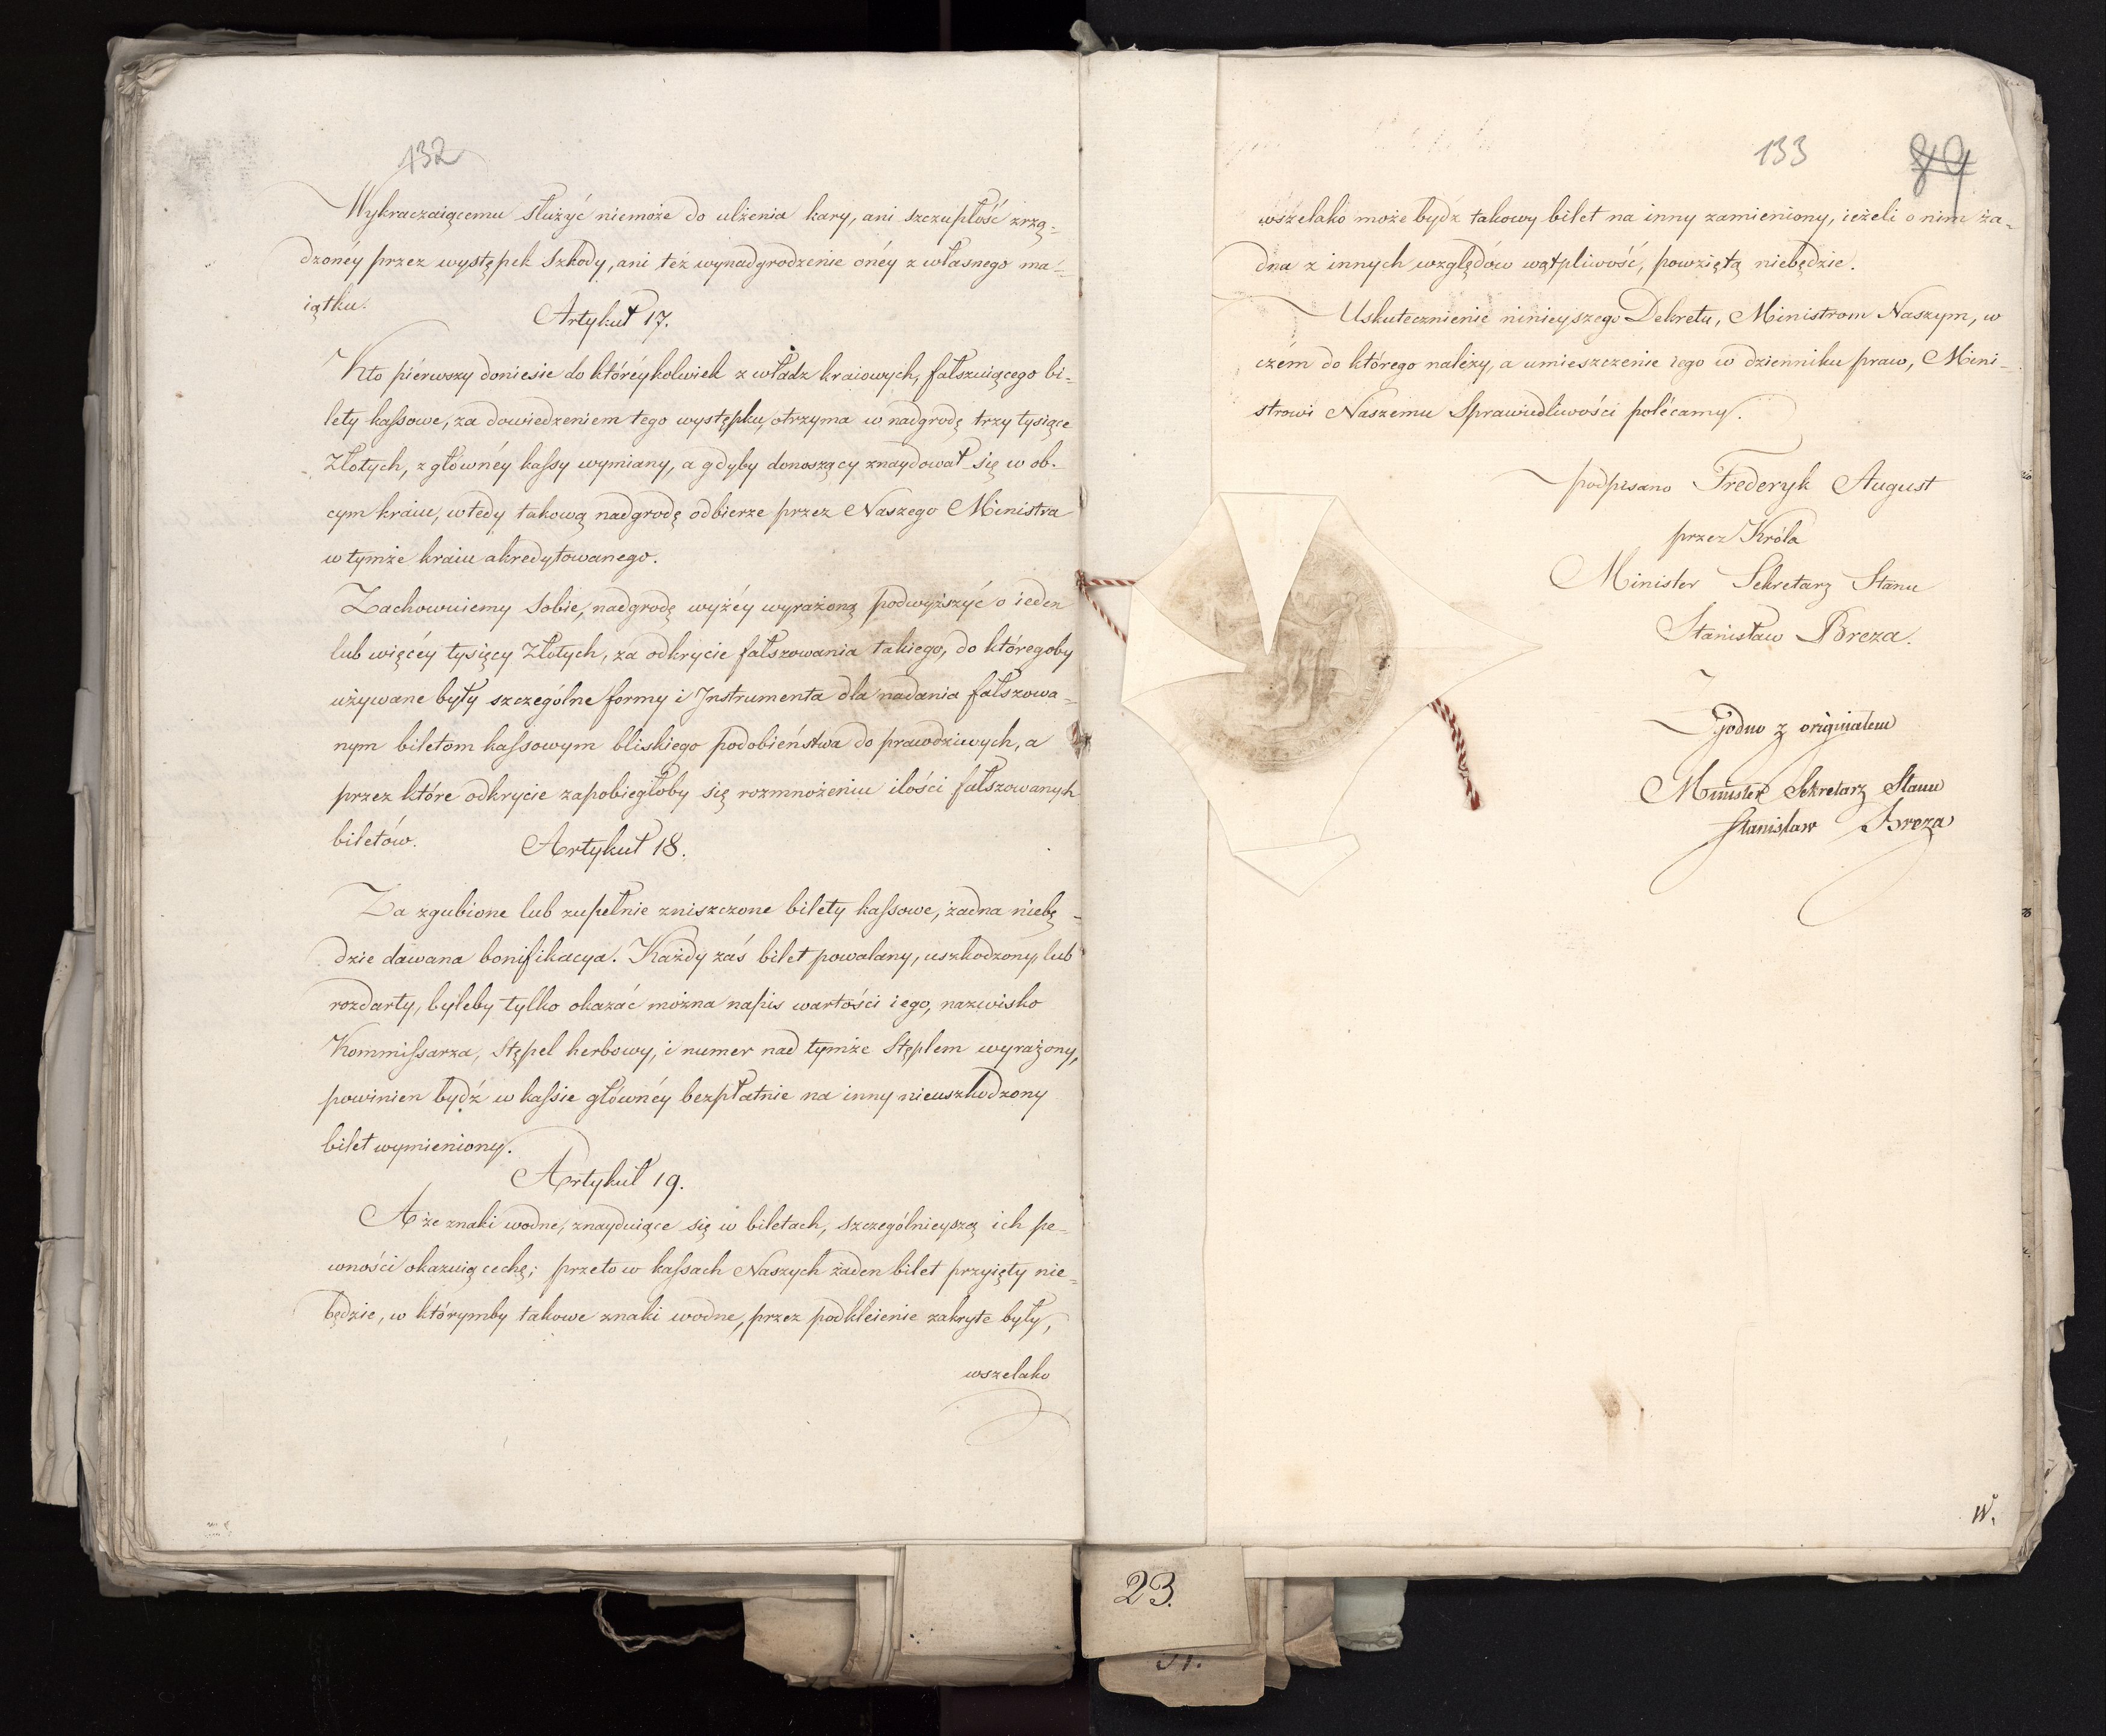 132
Wykraczaiącemu służyć niemoże do ulżenia kary, ani szczupłość zrzą-
dzonéy przez występek Szkody, ani też wynadgrodzenie onéy z własnego ma-
iątku.
Artykuł 17.
Kto piérwszy doniesie do któréykolwiek z władz kraiowych, fałszuiącego bi-
lety kassowe, za dowiedzeniem tego występku, otrzyma w nadgrodę trzy tysiące
Złotych, z głównéy kassy wymiany, a gdyby donoszący znaydował się w ob-
cym kraiu, wtedy takową nadgrodę odbierze przez Naszego Ministra
w tymże kraiu akredytowanego.
Zachowuiemy Sobie, nadgrodę wyżéy wyrażoną podwyższyć o ieden
lub więcéy tysięcy Złotych, za odkrycie fałszowania takiego, do któregoby
używane były szczególne formy i Instrumenta dla nadania fałszowa-
nym biletom kassowym bliskiego podobieństwa do prawdziwych, a
przez które odkrycie zapobiegłoby się rozmnożeniu ilości fałszowanych
biletów.
Artykuł 18.
Za zgubione lub zupełnie zniszczone bilety kassowe, żadna niebę-
dzie dawana bonifikacya. Każdy zaś bilet powalany, uszkodzony, lub
rozdarty, byleby tylko okazać można napis wartości iego, nazwisko
Kommissarza, Stępel herbowy, i numer nad tymże Stęplem wyrażony,
powinien bydź w kassie głównéy bezpłatnie na inny nieuszkodzony
bilet wymieniony.
Artykuł 19.
A że znaki wodne, znayduiące się w biletach, szczególnieyszą ich pe-
wności okazuią cechę; przeto w kassach Naszych żaden bilet przyięty nie-
będzie, w którymby takowe znaki wodne, przez podkleienie zakryte były,
wszelako
133
89
wszelako może bydź takowy bilet na inny zamieniony, ieżeli o nim ża-
dna z innych względów wątpliwość, powziętą niebędzie.
Uskutecznienie ninieyszego Dekretu, Ministrom Naszym, w
czém do którego należy, a umieszczenie iego w dzienniku praw, Mini-
strowi Naszemu Sprawiedliwości polécamy.
podpisano Frederyk August
przez Króla
Minister Sekretarz Stanu
Stanisław Breza.
Zgodno z originałem
Minister Sekretarz Stanu
Stanisław Breza
23.